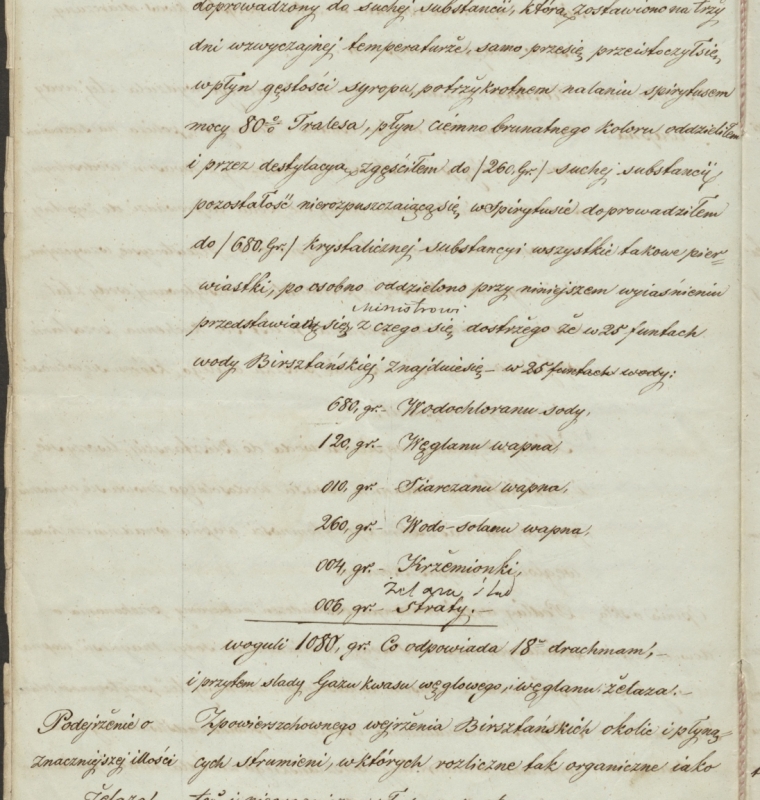 doprowadzony do suchej substancii, którą zostawiono na trzy
dni w zwyczajnej temperaturze, samo przesię przeistoczył się
w płyn gęstości syropu, potrzykrotnem nalaniu spirytusem
mocy 80% Tralesa, płyn ciemno brunatnego koloru oddzieliłem
i przez destylacyą zgęściłem do /260. Gr./ suchej substancii,
pozostałość nierozpuszczaiącą się w spirytusie doprowadziłem
do /680. Gr./ krystalicznej substancyi wszystkie takowe pier-
wiastki, po osobno oddzielono przy niniejszem wyiaśnieniu
Ministrowi
przedstawia się z czego się dostrzego że w 25 funtach
wody Birsztańskiéj znajdzie się – w 25 funtach wody:
680, gr. – Wodochloranu sody,
120, gr. – Węglanu wapna,
010, gr. – Siarczanu wapna,
260, gr. – Wodo-solanu wapna,
004, gr. – Krzemionki,
Żelaza i
006, gr. – Straty. –
woguli 1080, gr. Co odpowiada 18 drachmam, –
i przytem slady Gazu kwasu węglowego, i węglanu żelaza. –
Podejrżenie o
znaczniejszej illości
żelaza
Z powierszchownego wejrżenia Birsztańskich okolic i płyną-
cych strumieni, w których rozliczne tak organiczne iako